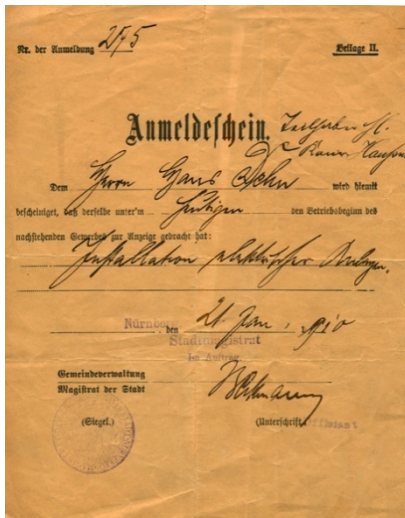 Nr. der Anmeldung 275
Beilage II.
Anmeldeschein. Teilhaber H.
Dem Herrn Hans Dehn wird hiemit
bescheiniget, daß derselbe unter'm heutigen den Betriebsbeginn des
nachstehenden Gewerbes zur Anzeige gebracht hat:
Installation elektrischer Anlagen.
Nürnberg den 21 Jan. 910
Stadtmagistrat
Im Auftrag.
Gemeindeverwaltung
Magistrat der Stadt
(Siegel.)
(Unterschrift) Offiziant